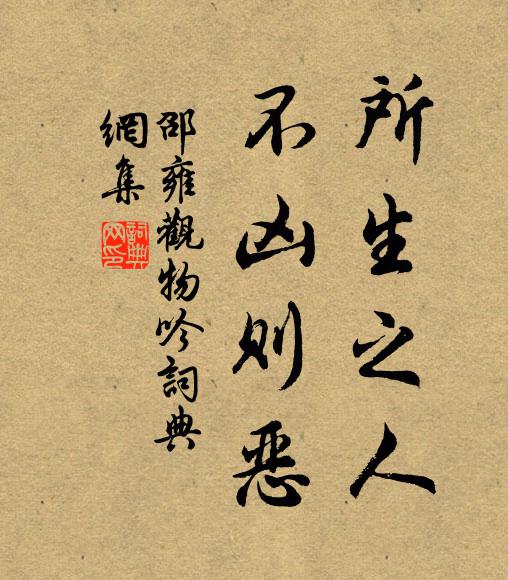 所生之人
不凶则恶
邵雍觀物吟詞典
網集
詞典
网印